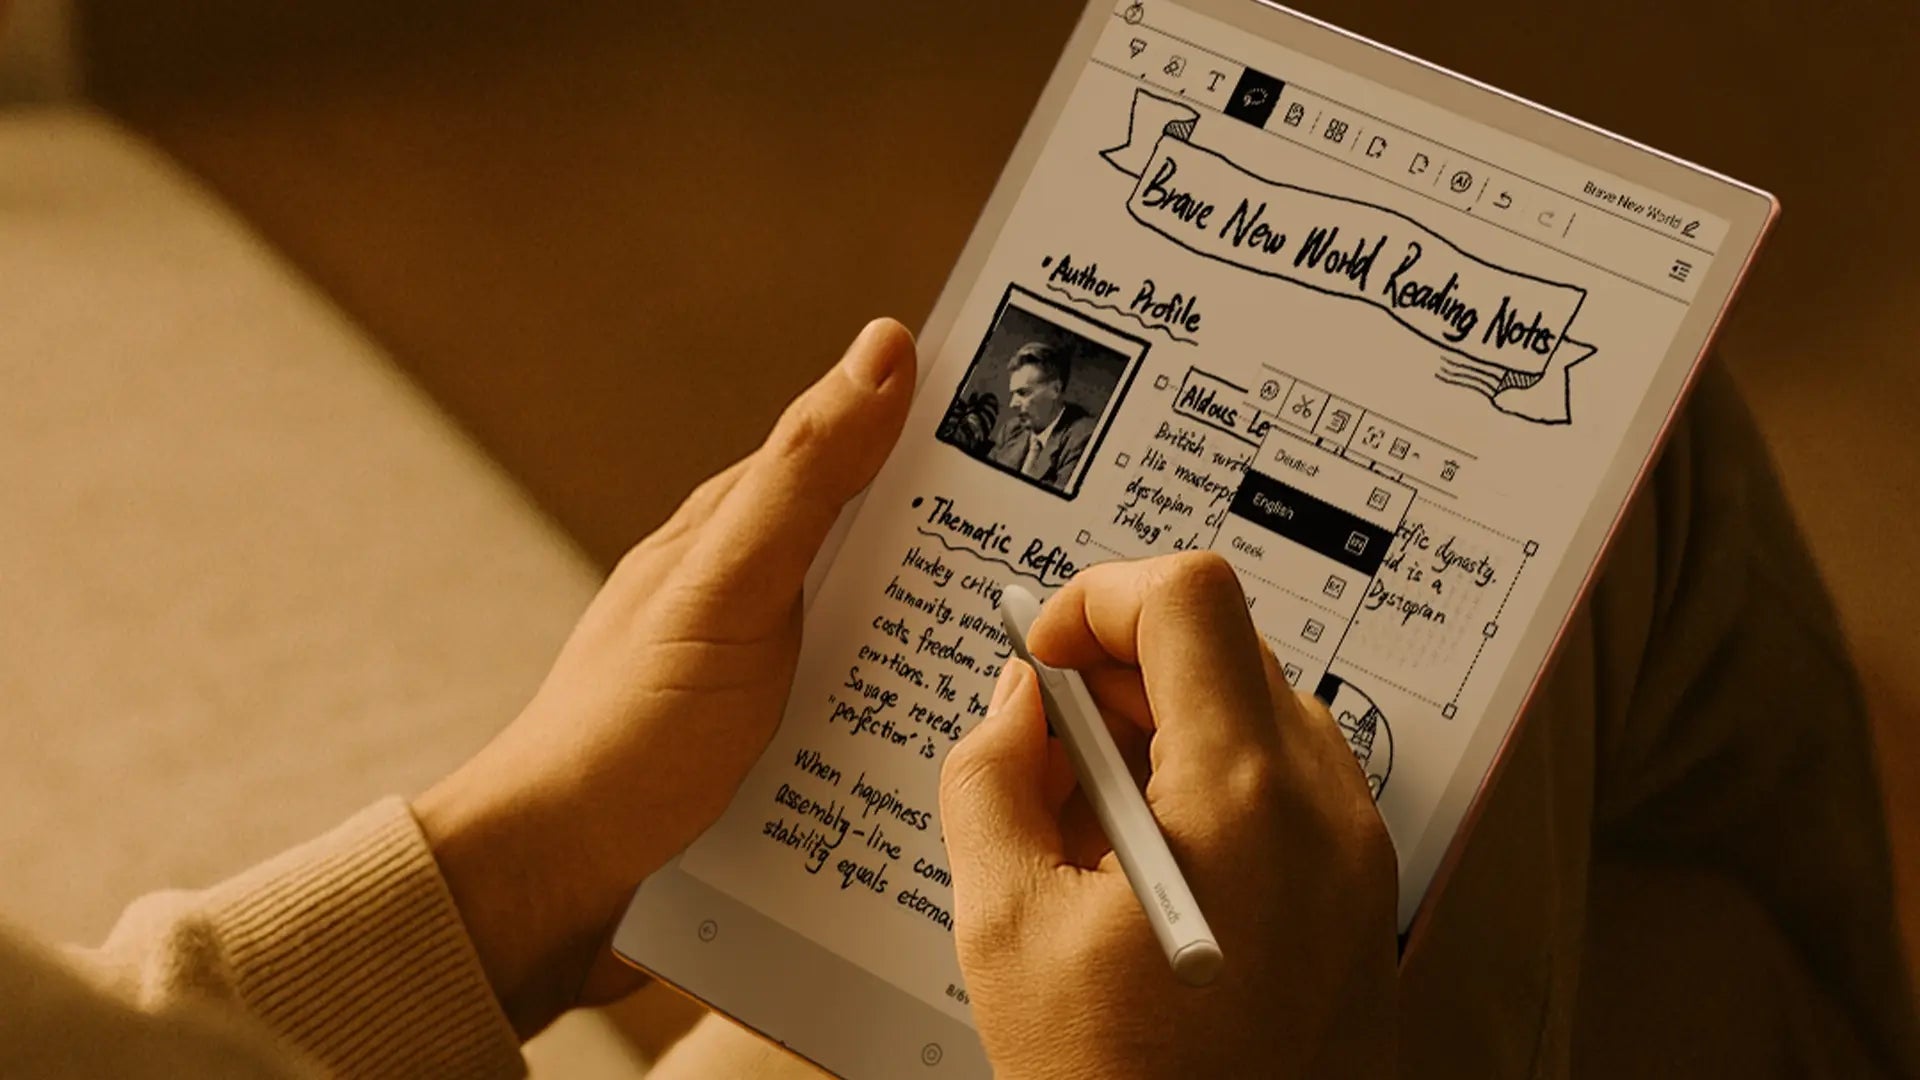 Brave New World
T
AI
Brave New World Reading Notes
• Author Profile
Aldous Le
British writ
His masterp
dystopian cl
Trilogy" als
Deutsch
English
Greek
tific dynasty.
ld is a
Dystopian
• Thematic Refle
Huxley critiq
humanity, warning
costs freedom, su
emotions. The tra
Savage reveals
"perfection" is
When happiness
assembly-line com
stability equals eterna
viwoods